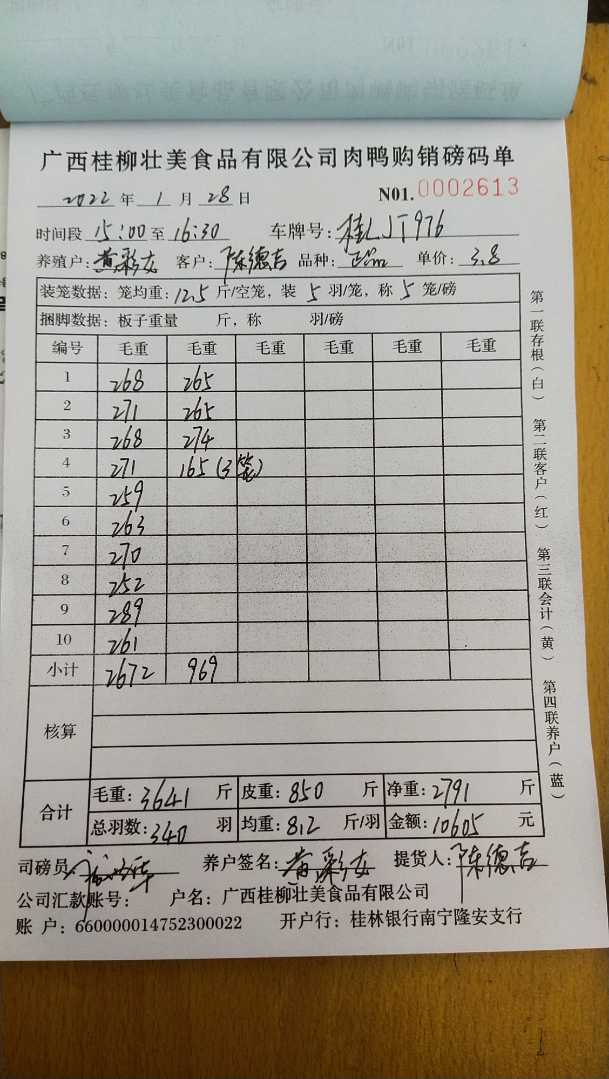 广西桂柳壮美食品有限公司肉鸭购销磅码单
2022 年 1 月 28 日 N01.0002613
时间段 15:00 至 16:30 车牌号: 桂LJT976
养殖户: 黄彩女 客户: 陈德吉 品种: 正品 单价: 3.8
装笼数据: 笼均重: 12.5 斤/空笼, 装 5 羽/笼, 称 5 笼/磅
捆脚数据: 板子重量 斤, 称 羽/磅
编号 毛重 毛重 毛重 毛重 毛重 毛重
1 268 265
2 271 265
3 268 274
4 271 165 (3笼)
5 259
6 263
7 270
8 252
9 289
10 261
小计 2672 969
核算
合计 毛重: 3641 斤 皮重: 850 斤 净重: 2791 斤
总羽数: 340 羽 均重: 8.2 斤/羽 金额: 10605 元
司磅员 养户签名: 黄彩女 提货人: 陈德吉
公司汇款账号: 户名: 广西桂柳壮美食品有限公司
账 户: 660000014752300022 开户行: 桂林银行南宁隆安支行
第一联存根(白)
第二联客户(红)
第三联会计(黄)
第四联养户(蓝)